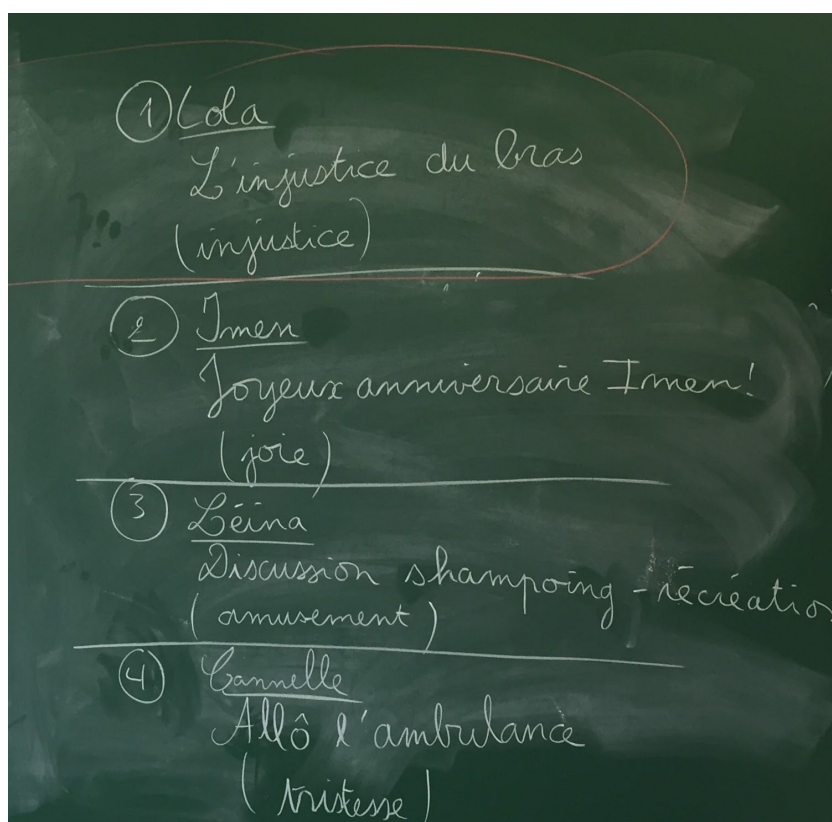 ① Lola
L'injustice du bras
(injustice)
② Imen
Joyeux anniversaire Imen!
(joie)
③ Léina
Discussion shampoing - récréatio
(amusement)
④ Cannelle
Allô l'ambulance
(tristesse)